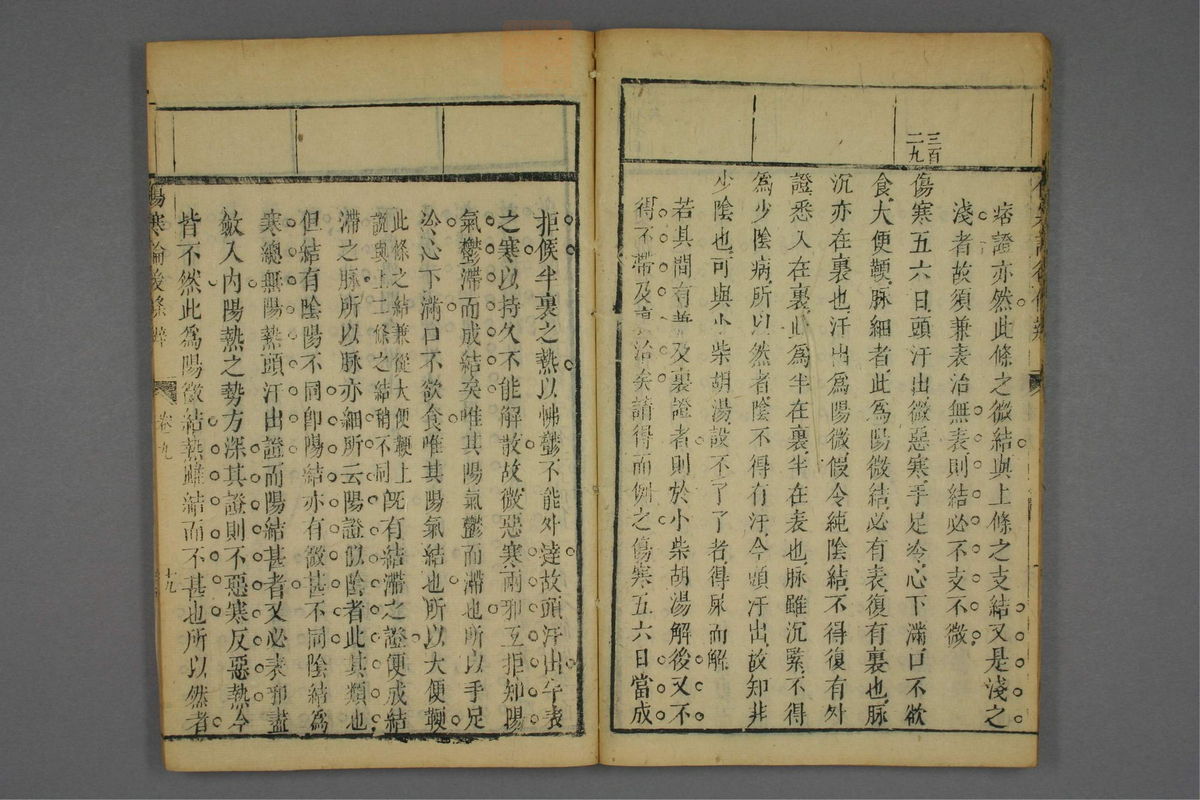 痞證亦然此條之微結與上條之支結又是淺之
淺者故須兼表治無表則結必不支不微
三百二九
傷寒五六日頭汗出微惡寒手足冷心下滿口不欲
食大便鞕脉細者此爲陽微結必有表復有裏也脉
沉亦在裏也汗出爲陽微假令純陰結不得復有外
證悉入在裏此爲半在裏半在表也脉雖沉緊不得
爲少陰病所以然者陰不得有汗今頭汗出故知非
少陰也可與小柴胡湯設不了了者得屎而解
若其間有兼及裏證者則於小柴胡湯解後又不
得不帶及裏治矣請得而例之傷寒五六日當成
拒候半裏之熱以怫鬱不能外達故頭汗出半表
之寒以持久不能解散故微惡寒兩邪互拒知陽
氣鬱滯而成結矣唯其陽氣鬱而滯也所以手足
冷心下滿口不欲食唯其陽氣結也所以大便鞕
此條之結兼從大便鞕上
說與上二條之結稍不同
既有結滯之證便成結
滯之脉所以脉亦細所云陽證似陰者此其類也
但結有陰陽不同卽陽結亦有微甚不同陰結爲
寒總無陽熱頭汗出證而陽結甚者又必表邪盡
斂入内陽熱之勢方深其證則不惡寒反惡熱今
皆不然此爲陽微結熱雖結而不甚也所以然者
傷寒論後條辨
卷九
十九